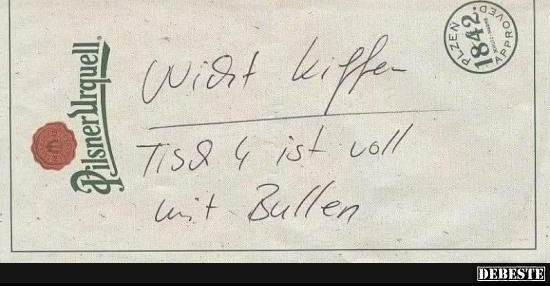 Pilsner Urquell
PLZEŇ
1842
APPROVED
Nicht kiffen
Tisch 4 ist voll
mit Bullen
DEBESTE